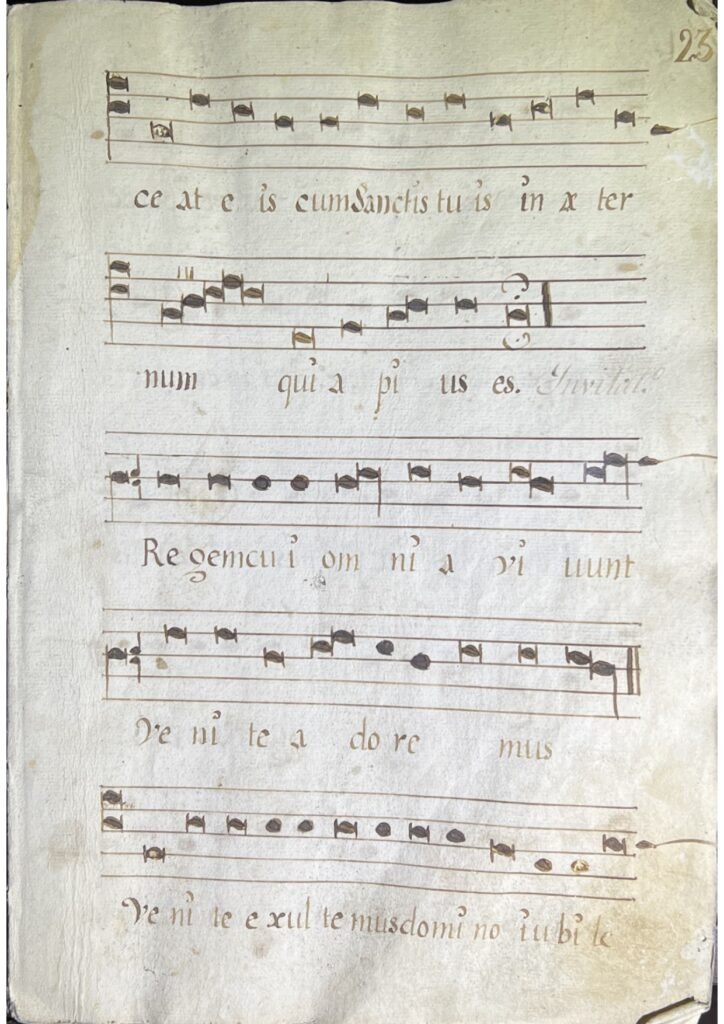 123
ce at e is cum Sanctis tu is in æ ter
num qui a pi us es. Invitat.º
Re gem cu i om ni a vi uunt
Ve ni te a do re mus
Ve ni te e xul te mus domi no iu bi le